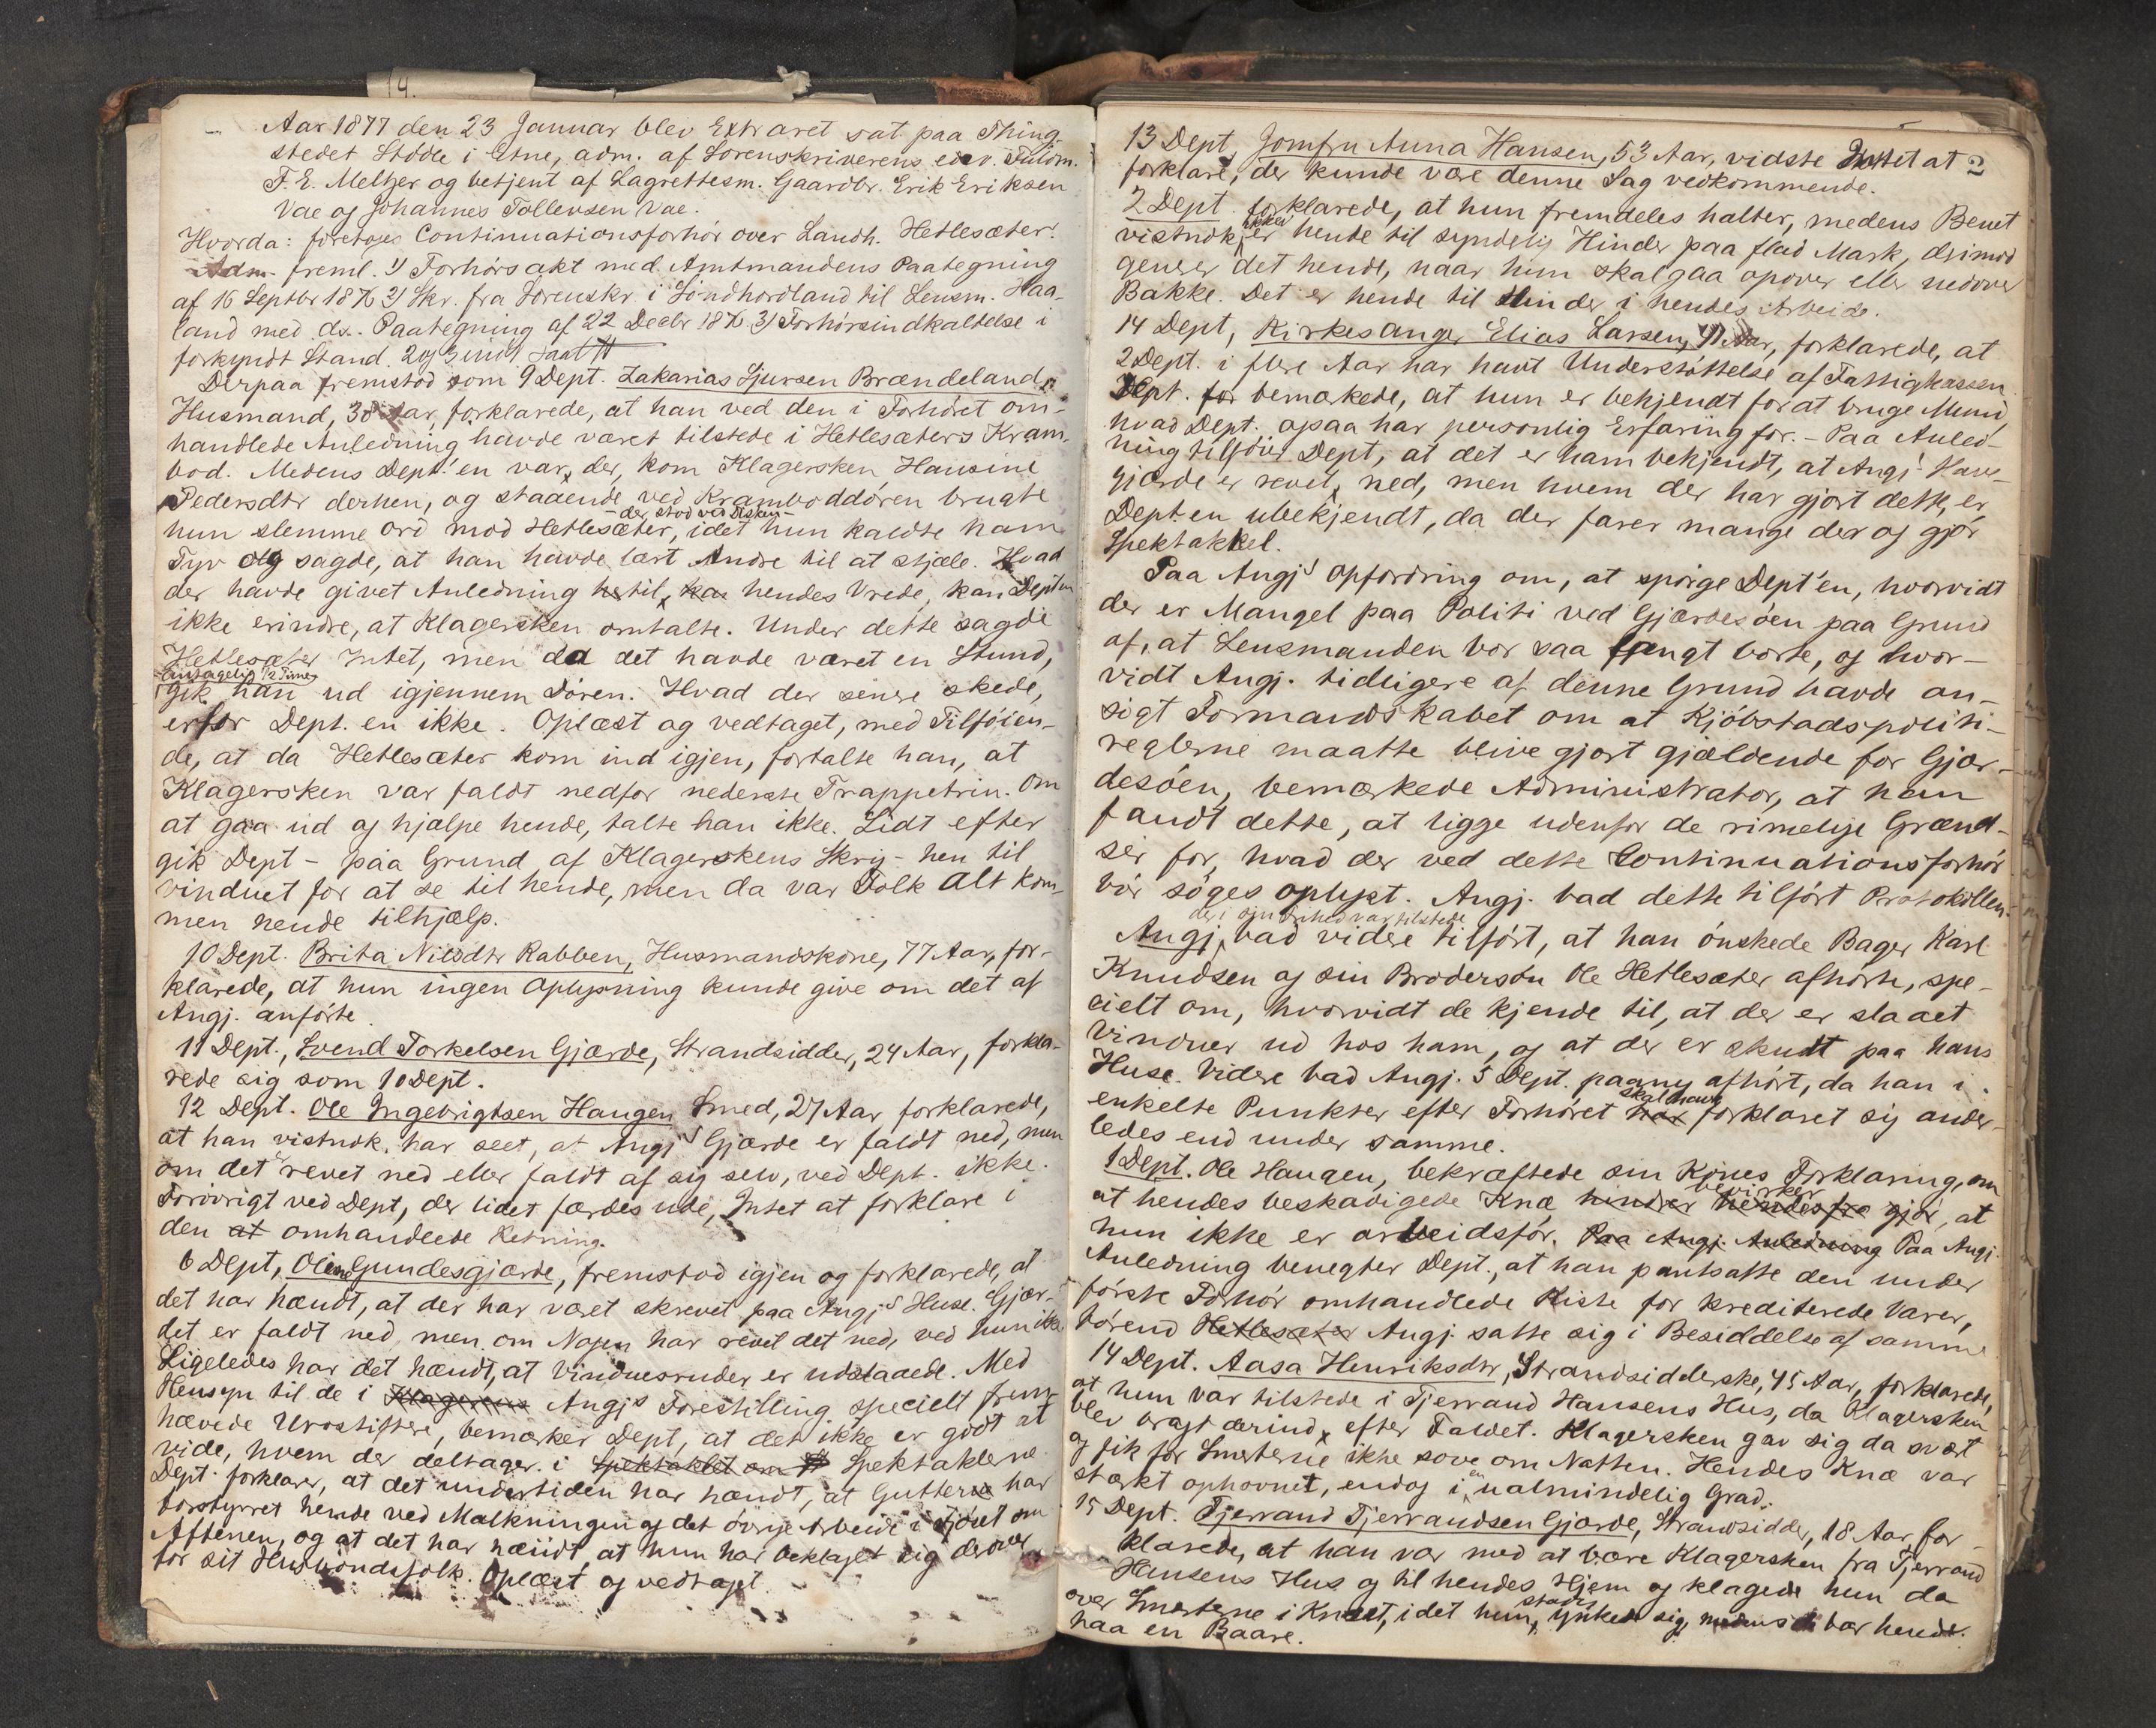 Aar 1877 den 23 Januar blev Extraret sat paa Thing-
stedet Stødle i Etne, adm. af Sorenskriverens edsv. Fuldm.
F. E. Meltzer og betjent af Lagrettesm. Gaardbr. Erik Eriksen
Vae og Johannes Tollevsen Vae.
Hvorda: foretoges Continuationsforhør over Landh. Hetlesæter.
Adm. freml. 1) Forhørsakt med Amtmandens Paategning
af 16 Septbr 1876 2) Skr. fra Sorenskr. i Søndhordland til Lensm. Haa-
land med ds. Paategning af 22 Decbr 1876. 3) Forhørsindkaldelse i
forkyndt Stand. 2 og 3 indt saal
Derpaa fremstod som 9 Dept. Zakarias Sjursen Brændeland,
Husmand, 38 Aar, forklarede, at han ved den i Forhøret om-
handlede Anledning havde været tilstede i Hetlesæters Kram-
bod. Medens Dept.'en var der, kom Klagersken Hansine
Pedersdtr derhen, og staaende ved Kramboddøren brugte
- der stod ved Disken -
hun slemme Ord mod Hetlesæter, idet hun kaldte ham
Tyv og sagde, at han havde lært Andre til at stjæle. Hvad
der havde givet Anledning til hendes Vrede, kan Dept'en
ikke erindre, at Klagersken omtalte. Under dette sagde
Hetlesæter Intet, men da det havde været en Stund,
antagelig 1/2 Time
gik han ud igjennem Døren. Hvad der senere skede,
erfor Dept. en ikke. Oplæst og vedtaget, med Tilføien-
de, at da Hetlesæter kom ind igjen, fortalte han, at
Klagersken var faldt nedfor nederste Trappetrin. Om
at gaa ud og hjælpe hende, talte han ikke. Lidt efter
gik Dept - paa Grund af Klagerskens Skrig - hen til
vinduet for at se til hende, men da var Folk alt kom-
men hende tilhjælp.
10 Dept. Brita Nilsdtr Rabben, Husmandskone, 77 Aar, for-
klarede, at hun ingen Oplysning kunde give om det af
Angj. anførte
11 Dept., Svend Torkelsen Gjærde, Strandsidder, 24 Aar, forkla-
rede sig som 10 Dept.
12 Dept. Ole Ingebrigtsen Haugen Smed, 27 Aar forklarede,
at han vistnok har seet, at Angjs Gjærde er faldt ned, men
om det er revet ned eller faldt af sig selv, ved Dept. ikke.
Forøvrigt ved Dept, der lidet færdes ude, Intet at forklare i
den at omhandlede Retning.
6 Dept, Gundesgjærde, fremstod igjen og forklarede, at
det har hændt, at der har været skrevet paa Angjs Huse. Gjær-
det er faldt ned, men om Nogen har revet det ned, ved hun ikke
Ligeledes har det hændt, at Vinduesruder er udslaaede. Med
Hensyn til de i Klagerens Angjs Forestilling specielt frem-
hævede Urostiftere, bemærker Dept, at det ikke er godt at
vide, hvem der deltager i Spektaklet om Spektaklerne
Dept. forklarer, at det undertiden har hændt, at Gutterne har
forstyrret hende ved Malkningen og det øvrige Arbeide i Fjøset om
Aftenen, og at det har hændt, at hun har beklaget sig derover
for sit Husbondsfolk. Oplæst og vedtaget.
2
13 Dept, Jomfru Anna Hansen, 53 Aar, vidste Intet at
forklare, der kunde være denne Sag vedkommende.
2 Dept. forklarede, at hun fremdeles halter, medens Benet
ikke
vistnok er hende til synderlig Hinder paa flad Mark, derimod
generer det hende, naar hun skal gaa opover eller nedover
Bakke. Det er hende til Hinder i hendes Arbeide.
14 Dept, Kirkesanger Elias Larsen, Aar, forklarede, at
2 Dept. i flere Aar har havt Understøttelse af Fattigkassen
Dept. for bemækede, at hun er bekjendt for at bruge Mund,
hvad Dept. ogsaa har personlig Erfaring for. - Paa Anled-
ning tilføier Dept, at det er ham bekjendt, at Angjs Hav-
gjærde er revet ned, men hvem der har gjort dette, er
Dept. en ubekjendt, da der farer mange der og gjør
Spektakkel.
Paa Angjs Opfordring om, at spørge Dept'en, hvorvidt
der er Mangel paa Politi ved Gjærdesøen paa Grund
af, at Lensmanden bor saa langt borte, og hvor-
vidt Angj. tidligere af denne Grund havde an-
søgt Formandskabet om at Kjøbstadspoliti-
reglerne maatte blive gjort gjældende for Gjær-
desøen, bemærkede Administrator, at han
fandt dette, at ligge udenfor de rimelige Grænd-
ser for, hvad der ved dette Continuationsforhør
bør søges oplyst. Angj. bad dette tilført Protokollen.
der i øvrighed var tilstede
Angj. bad videre tilført, at han ønskede Bager Karl
Knudsen og sin Brodersøn Ole Hetlesæter afhørte, spe-
cielt om, hvorvidt de kjende til, at der er slaaet
Vinduer ud hos ham, og at der er skudt paa hans
Huse. Videre bad Angj. 5 Dept. paany afhørt, da han i
skal have
enkelte Punkter efter Forhøret har forklaret sig ander-
ledes end under samme.
1 Dept. Ole Haugen, bekræftede sin Kones Forklaring, om
bevirker
at hendes beskadigede Knæ hindrer hendes fra gjør, at
hun ikke er arbeidsfør. Paa Angj. Anledning Paa Angj.
Anledning benegter Dept., at han pantsatte den under
første Forhør omhandlede Kiste for krediterede Varer,
førend Hetlesæter Angj. satte sig i Besiddelse af samme
14 Dept. Aasa Henriksdtr, Strandsidderske, 45 Aar, forklarede,
at hun var tilstede i Tjerrand Hansens Hus, da Klagersken
blev bragt derind efter Faldet. Klagersken gav sig da svært
og fik for Smerterne ikke sove om Natten. Hendes Knæ var
stærkt ophovnet, endog i en ualmindelig Grad.
15 Dept. Tjerrand Tjerrandsen Gjærde, Strandsidder, 18 Aar, for-
klarede, at han var med at bære Klagersken fra Tjerrand
Hansens Hus og til hendes Hjem og klagede hun da
stadig
over Smerterne i Knæet, idet hun ynkede sig, medens de bar hende
paa en Baare.